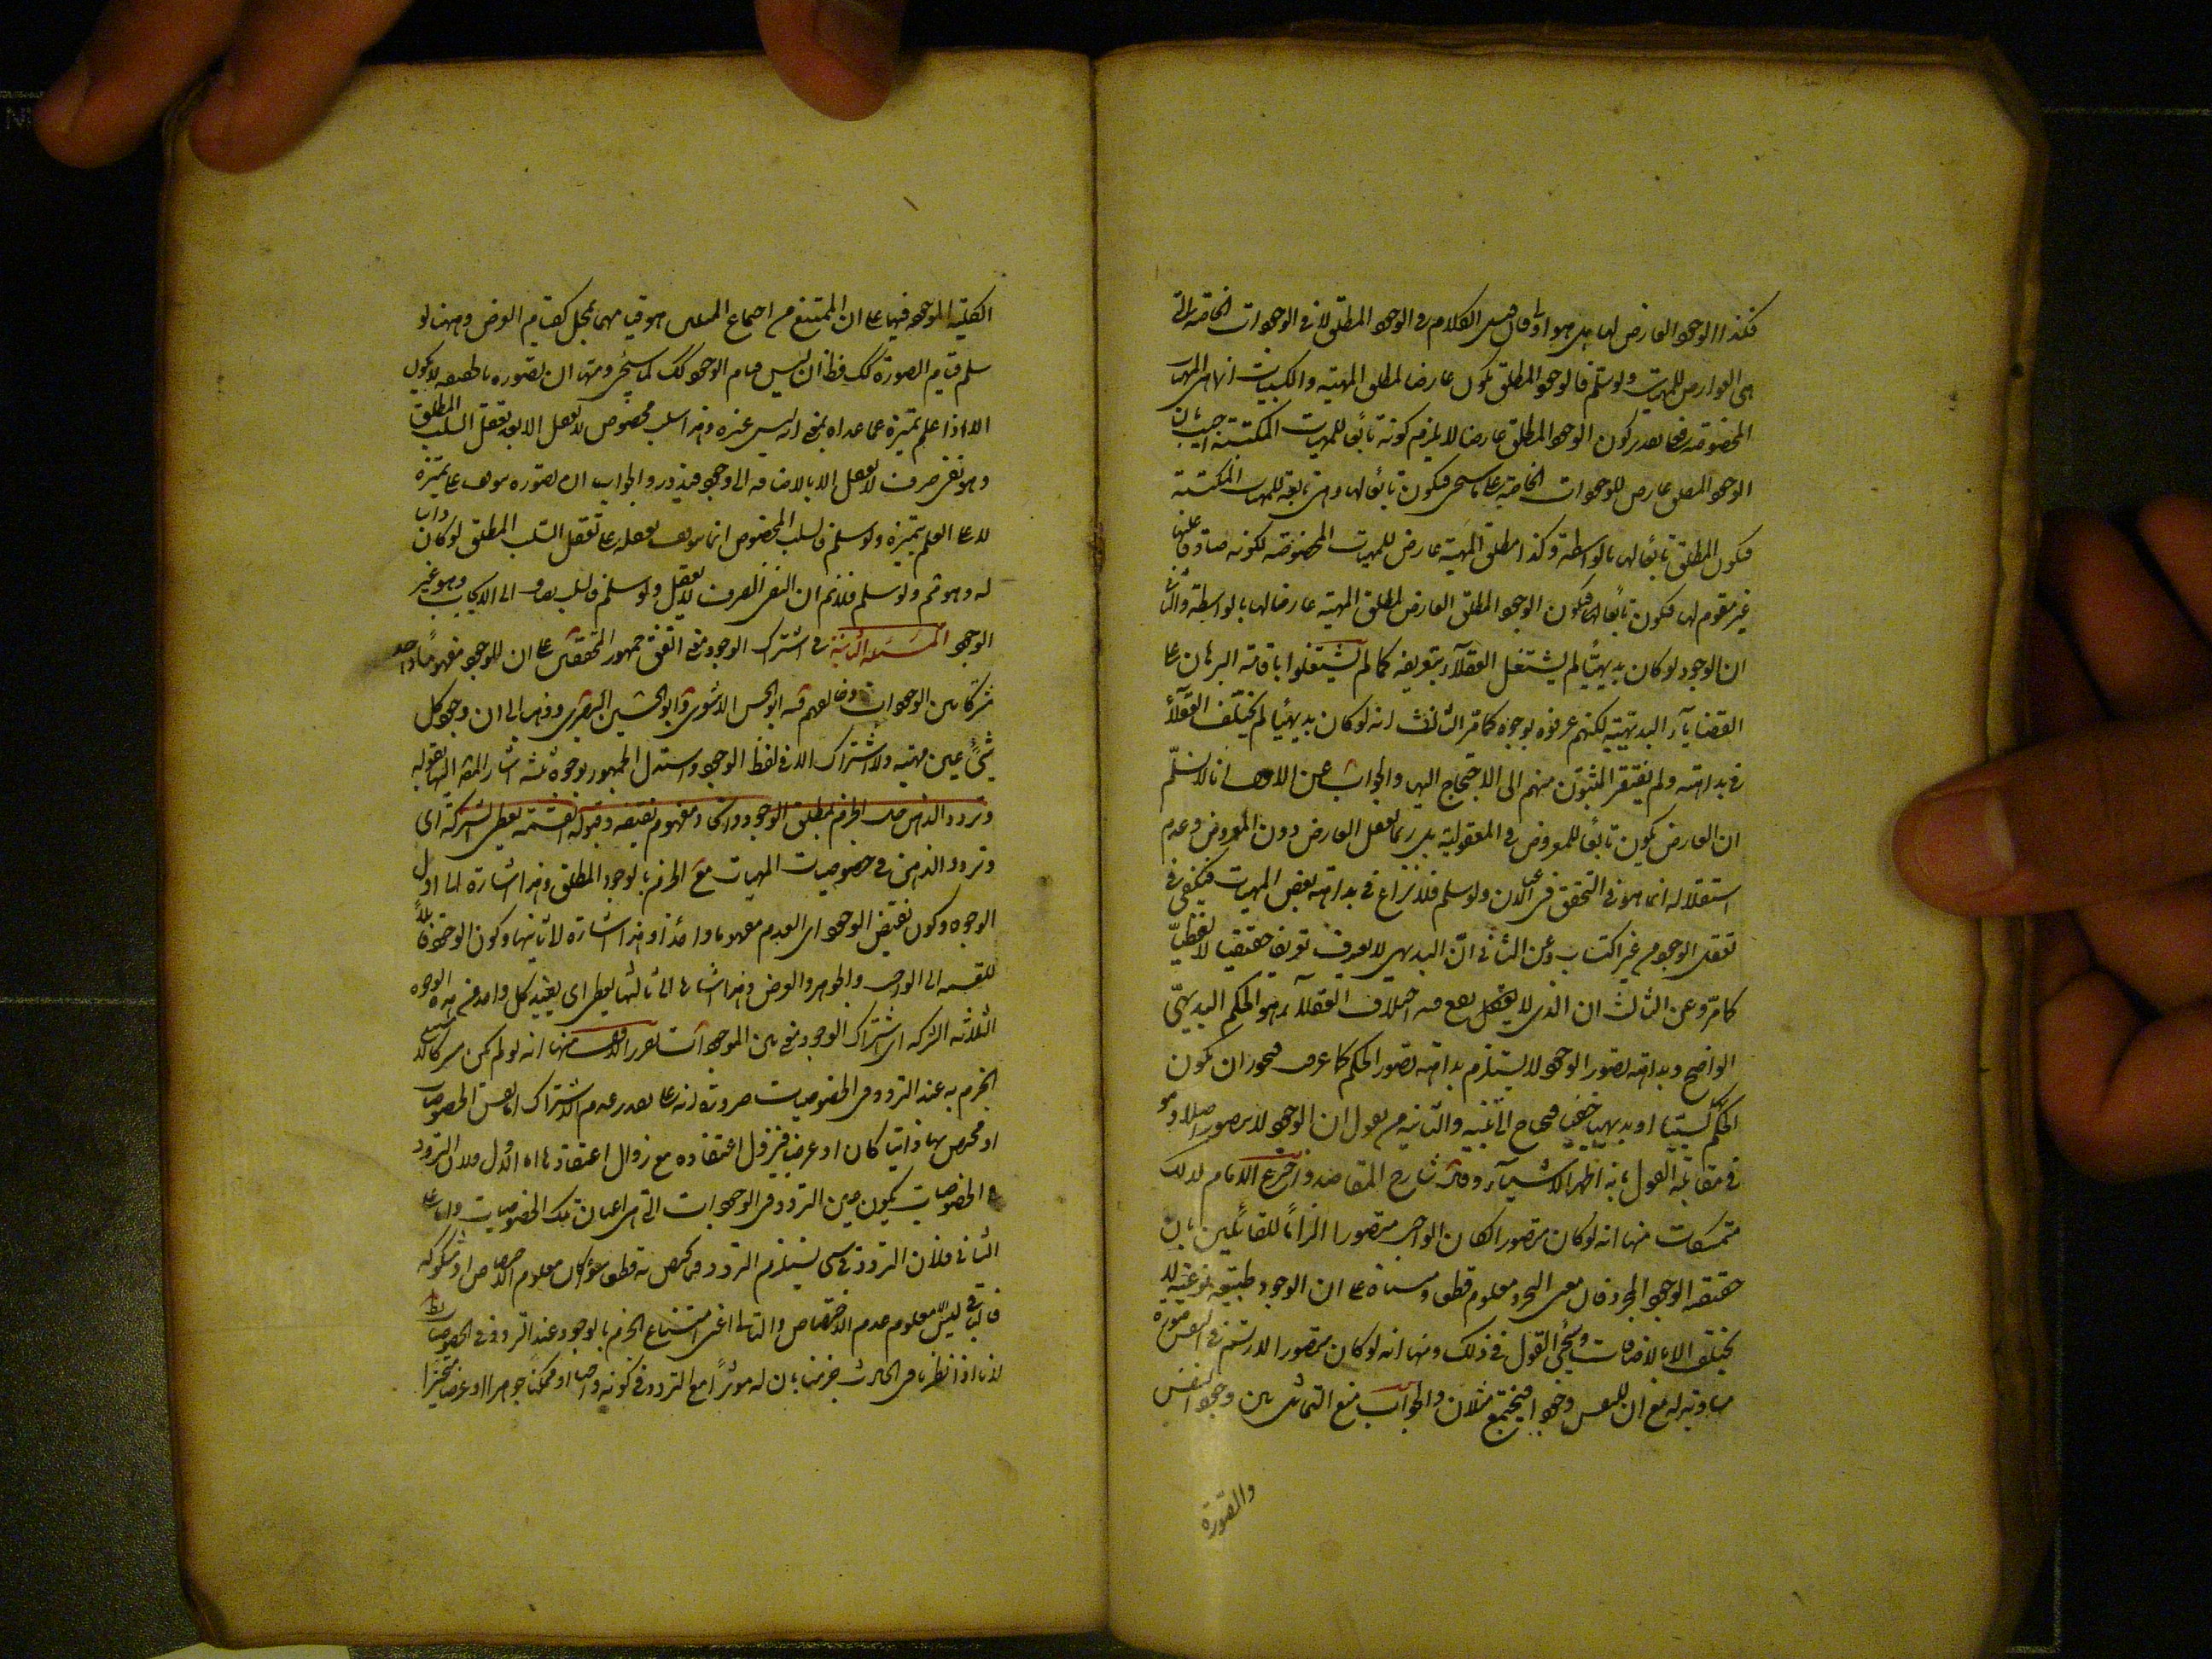 فكذا الوجود العارض لها بل هو اولى فان قيل الكلام فى الوجود المطلق لا فى الوجودات الخاصة التى
هى العوارض للمهيات ولو سلم فالوجود المطلق يكون عارضا لمطلق المهية والكسبيات انما هى المهيات
المخصوصة فعلى تقدير كون الوجود المطلق عارضا لا يلزم كونه تابعا للمهيات المكتسبة اجيب بان
الوجود المطلق عارض للوجودات الخاصة على ما سيجى فيكون تابعا لها وهى تابعة للمهيات المكتسبة
فيكون المطلق تابعا لها بالواسطة وكذا مطلق المهية عارض للمهيات المخصوصة لكونه صادقا عليها
غير مقوم لها فيكون تابعا لها فيكون الوجود المطلق العارض لمطلق المهية عارضا لها بالواسطة والثانى
ان الوجود لو كان بديهيا لم يشتغل العقلاء بتعريفه كما لم يشتغلوا باقامة البرهان على
القضايا البديهية لكنهم عرفوه بوجوه كما مر الثالث انه لو كان بديهيا لم يختلف العقلاء
فى بداهته ولم يفتقر المثبتون منهم الى الاحتجاج اليها والجواب عن الاول انا لا نسلم
ان العارض يكون تابعا للمعروض فى المعقولية بل ربما يعقل العارض دون المعروض وعدم
استقلاله انما هو فى التحقق فى الاعيان ولو سلم فلا نزاع فى بداهة بعض المهيات فيكفى فى
تعقل الوجود من غير اكتساب وعن الثانى ان البديهى لا يعرف تعريفا حقيقيا لا لفظيا
كما مر وعن الثالث ان الذى لا يقع فيه اختلاف العقلاء هو الحكم البديهى
الواضح وبداهة تصور الوجود لا يستلزم بداهة تصور الحكم كما عرف فيجوز ان يكون
الحكم كسبيا او بديهيا خفيا فيحتاج الى تنبيه والثانية من يقول ان الوجود لا يتصور اصلا وهو
فى مقابلة القول بانه اظهر الاشياء وقال شارح المقاصد واخترع الامام لذلك
متمسكات منها انه لو كان متصورا لكان الواجب متصورا الزاما للقائلين بان
حقيقة الوجود المجرد فان معنى التجرد معلوم قطعا ومبناه على ان الوجود طبيعة نوعية لا
يختلف الا بالاضافات وسيجى القول فى ذلك ومنها انه لو كان متصورا لارتسم فى النفس صورة
مساوية له مع ان للنفس وجودا فيجتمع مثلان والجواب منع التماثل بين وجود النفس
والصورة
الكلية الموجود فيها على ان الممتنع من اجتماع المثلين هو قيامهما بمحل كقيام العرض وههنا لو
سلم قيام الصورة كك فظ ان ليس قيام الوجود كك كما سيجى ومنها ان تصوره بالحقيقة لا يكون
الا اذا علم تميزه عما عداه بمعنى انه ليس غيره وهذا سلب مخصوص لا يعقل الا بعد تعقل السلب المطلق
وهو نفى صرف لا يعقل الا بالاضافة الى وجود فيدور والجواب ان تصوره يتوقف على تميزه
لا على العلم بتميزه ولو سلم فالسلب المخصوص انما يتوقف تعقله على تعقل السلب المطلق لو كان ذاتيا
له وهو ثم ولو سلم فلا نم ان النفى الصرف لا يعقل ولو سلم فالسلب يضاف الى الايجاب وهو غير
الوجود المسئلة الثانية فى اشتراك الوجود معنى اتفق جمهور المحققين على ان للوجود مفهوما واحدا
مشتركا بين الوجودات وخالفهم فيه ابو الحسن الاشعرى وابو الحسين البصرى وذهبا الى ان وجود كل
شئ عين مهيته ولا اشتراك الا فى لفظ الوجود واستدل الجمهور بوجوه ثلثة اشار المص اليها بقوله
وتردد الذهن حال الجزم بمطلق الوجود واتحاد مفهوم نقيضه وقبوله القسمة يعطى الشركة اى
وتردد الذهن فى خصوصيات المهيات مع الجزم بالوجود المطلق وهذا اشارة الى اول
الوجوه وكون نقيض الوجود اى العدم مفهوما واحدا وهذا اشارة الى ثانيها وكون الوجود قابلا
للقسمة الى الواجب والجوهر والعرض وهذا اشارة الى ثالثها يعطى اى يفيد كل واحد من هذه الوجوه
الثلاثة الشركة اى اشتراك الوجود معنى بين الموجودات تقرير الاول منها انه لو لم يكن مشتركا لامتنع
الجزم به عند التردد فى الخصوصيات ضرورة انه على تقدير عدم الاشتراك اما نفس الخصوصيات
او مختص بها ذاتيا كان او عرضيا فيزول اعتقاده مع زوال اعتقادها اما الاول فلان التردد
فى الخصوصيات يكون عين التردد فى الوجودات التى هى اعيان تلك الخصوصيات واما على
الثانى فلان التردد فى شئ يستلزم التردد فيما يختص به قطعا سواء كان معلوم الاختصاص او مشكوكه
فالباقى ليس الا معلوم عدم الاختصاص والتالى اعنى امتناع الجزم بالوجود عند التردد فى الخصوصيات بط
لانا اذا نظرنا فى الحادث جزمنا بان له مؤثرا مع التردد فى كونه واجبا او ممكنا جوهرا او عرضا متحيزا